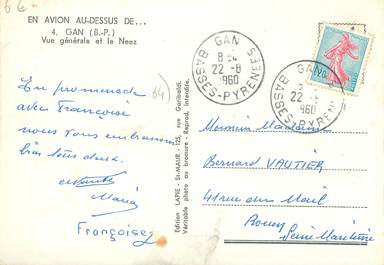 6 €
EN AVION AU-DESSUS DE...
4. GAN (B.-P.)
Vue générale et le Neez
En promenade
avec Françoise
nous vous embrassons
bien tous deux.
Maria
Françoise
(64)
Edition LAPIE - St-MAUR - 125, rue Garibaldi.
Véritable photo au bromure - Reprod. interdite.
GAN
22 - 8
1960
BASSES-PYRENEES
GAN
22
1960
BASSES-PYRENEES
Monsieur Madame
Bernard VAUTIER
41 rue du Mail
Rouen
Seine Maritime